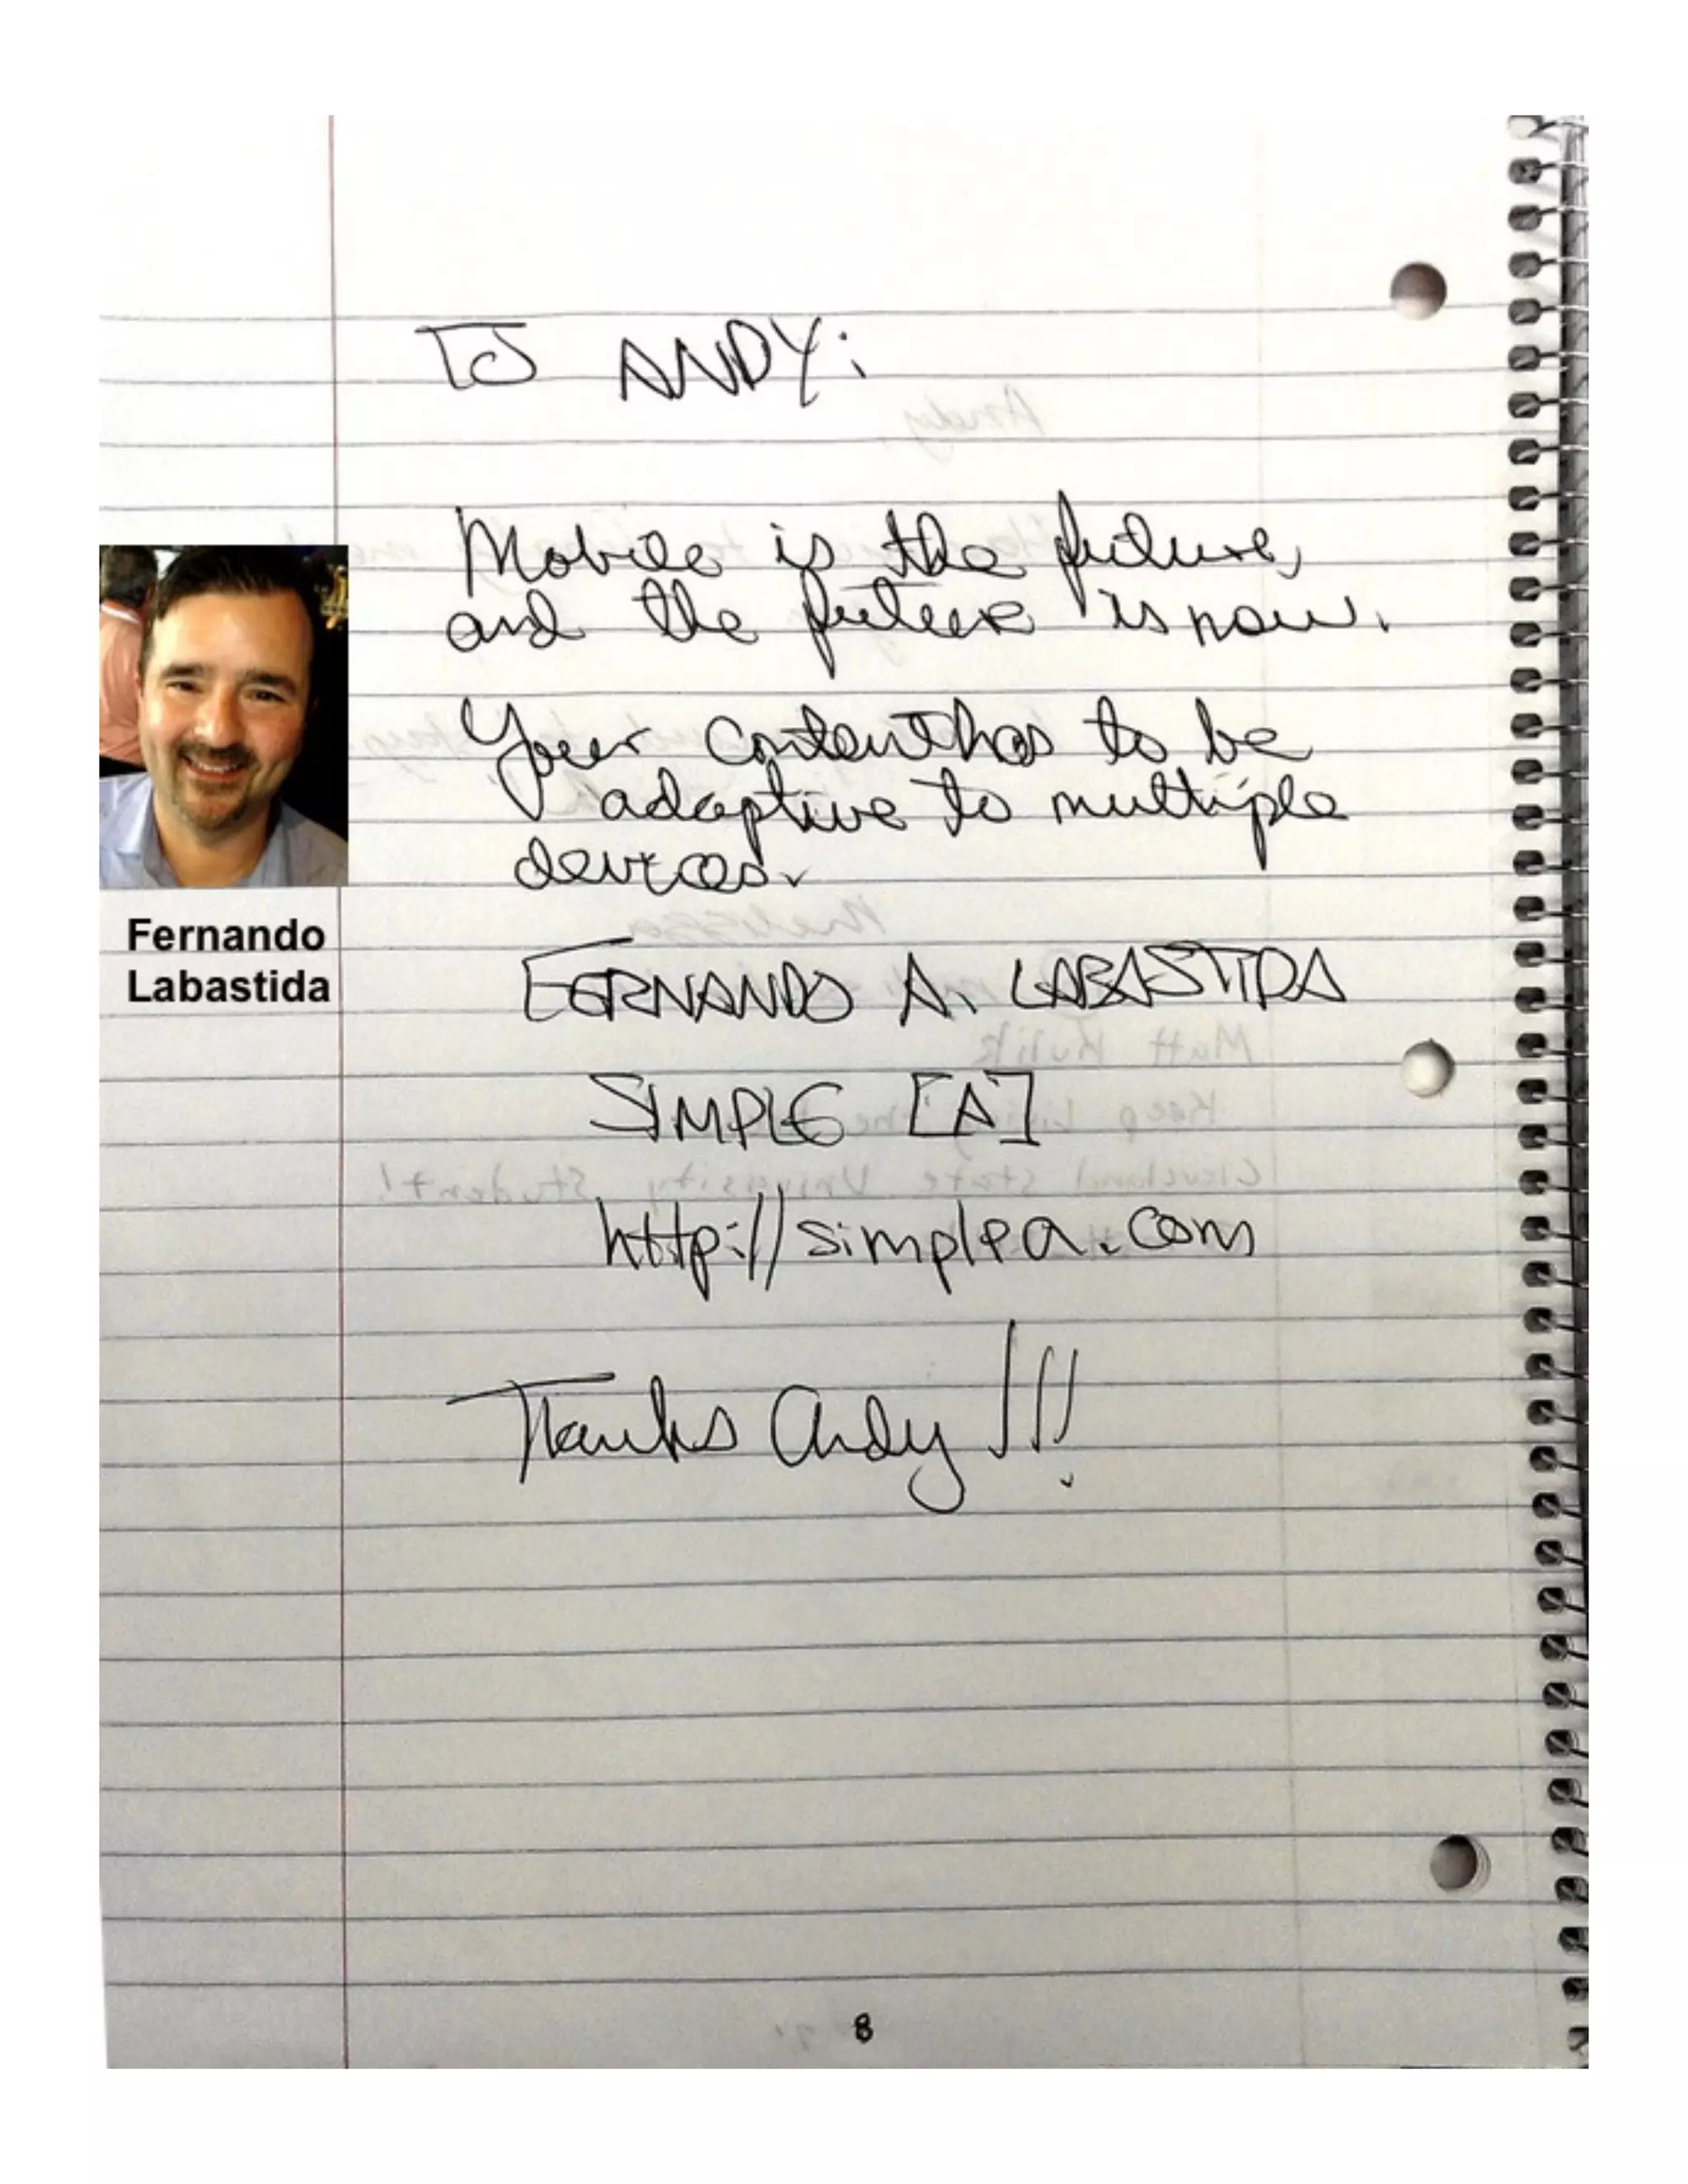 TO ANDY:
Mobile is the future,
and the future is now.
Your content has to be
adaptive to multiple
devices.
Fernando
Labastida
FERNANDO A. LABASTIDA
Matt Kulik
SIMPLE [A]
Cleveland State University Student!
http://simplea.com
Thanks Andy!!!
8